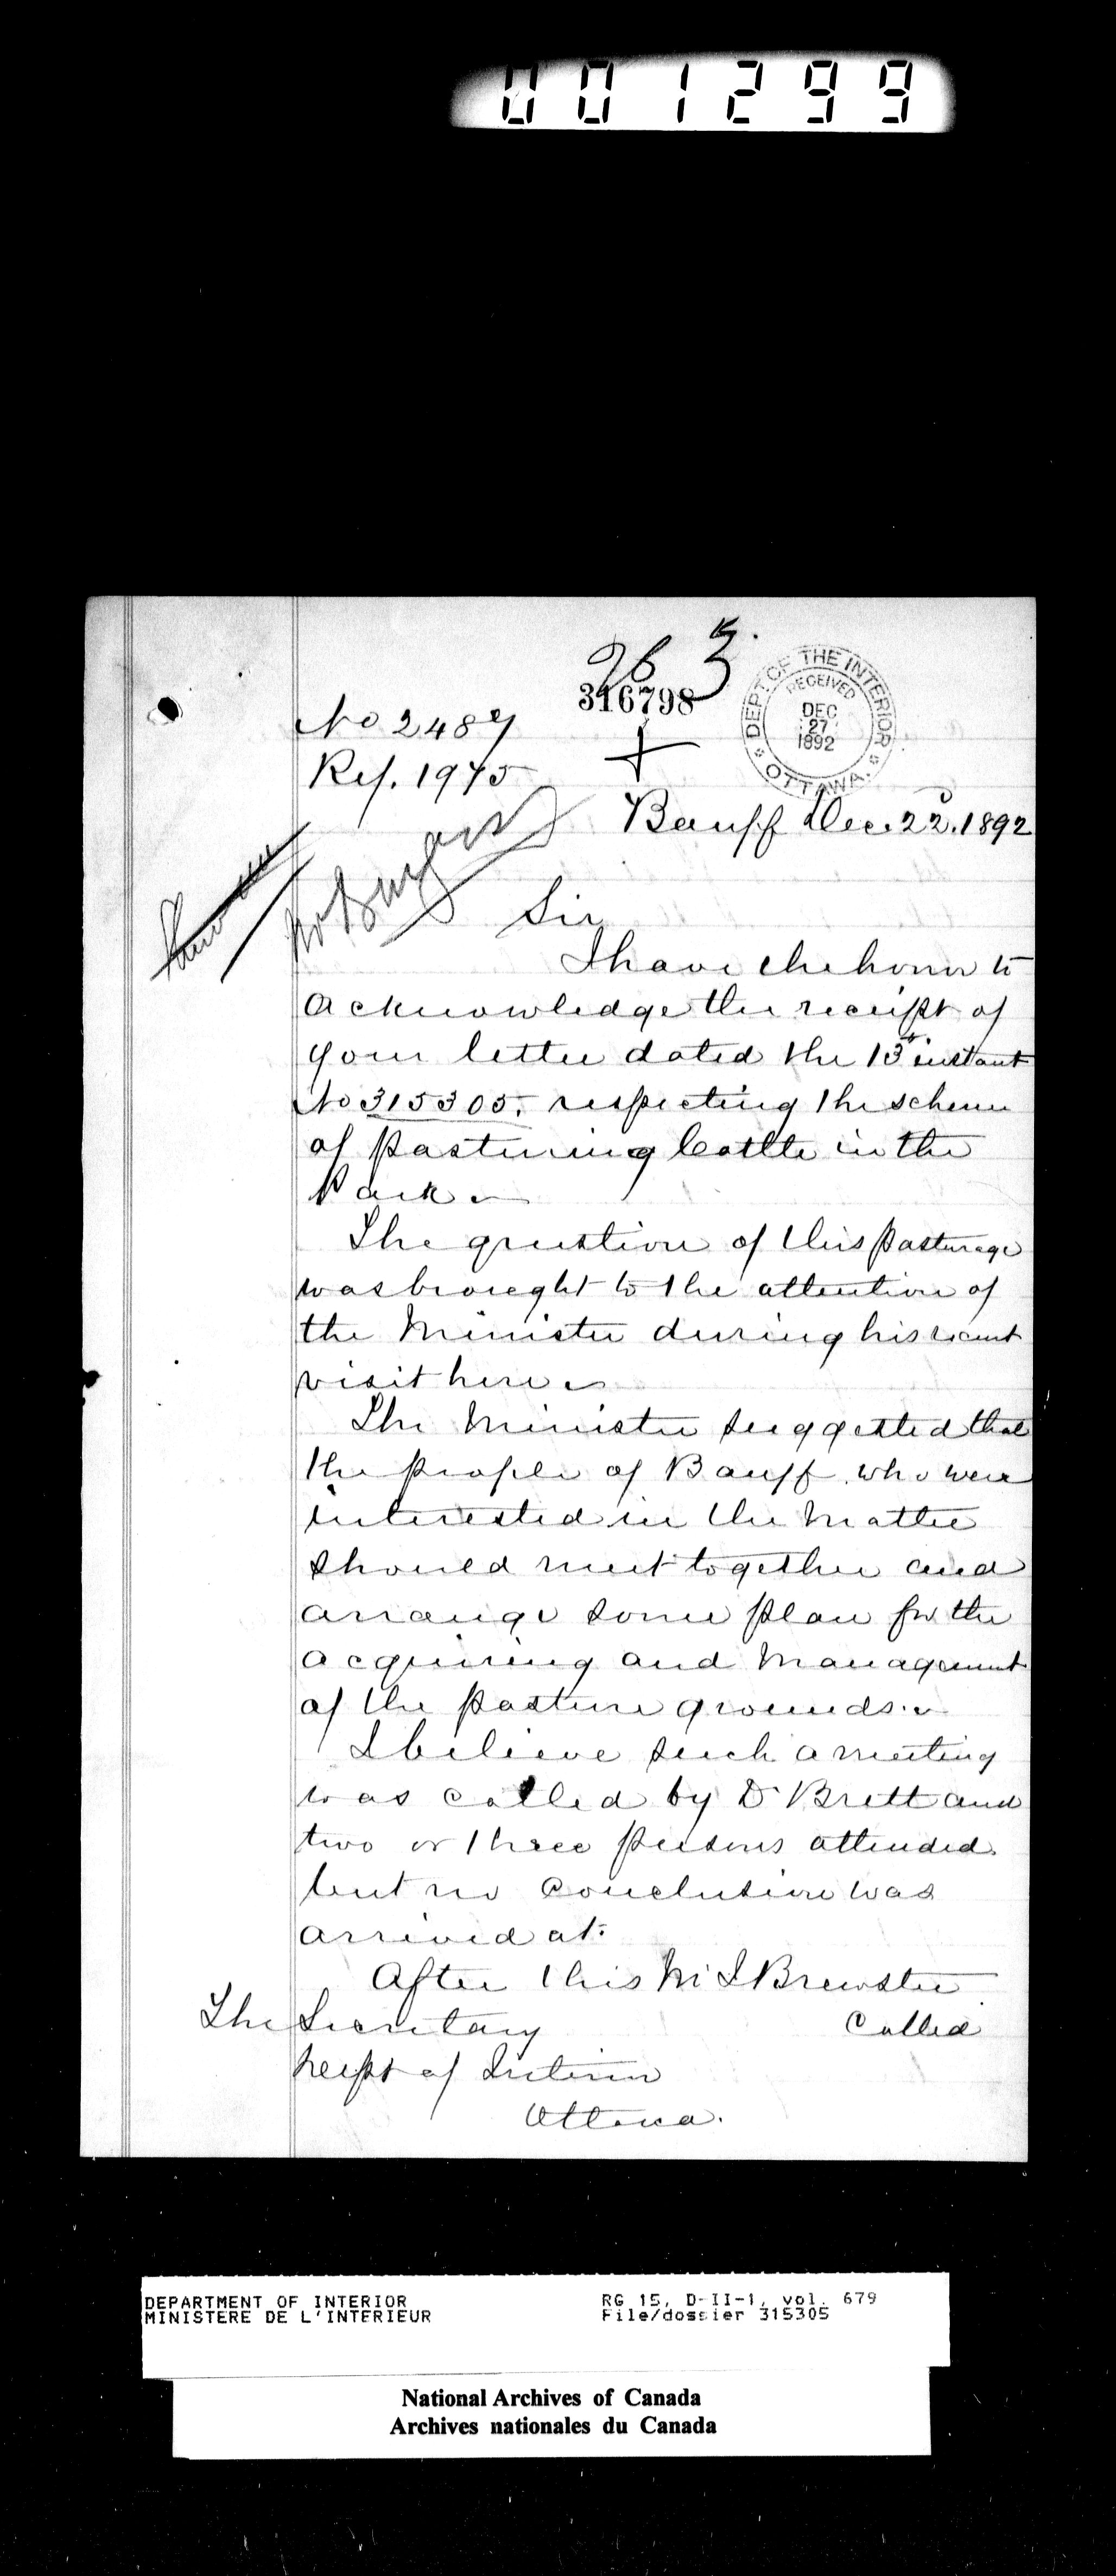 001299
316798
DEPT OF THE INTERIOR
RECEIVED
DEC
27
1892
OTTAWA
No 2487
Ref. 1975
Banff Dec. 22d. 1892
Sir
I have the honor to
acknowledge the receipt of
your letter dated the 13th instant
No 315305, respecting the scheme
of pasturing Cattle in the
Park.
The question of this pasturage
was brought to the attention of
the Minister during his recent
visit here.
The Minister suggested that
the people of Banff who were
interested in the matter
should meet together and
arrange some plan for the
acquiring and management
of the pasture grounds.
I believe such a meeting
was called by Dr Brett and
two or three persons attended
but no conclusion was
arrived at.
After this Mr J Brewster
called
The Secretary
Dept of Interior
Ottawa.
DEPARTMENT OF INTERIOR RG 15, D-II-1, vol. 679
MINISTERE DE L'INTERIEUR File/dossier 315305
National Archives of Canada
Archives nationales du Canada